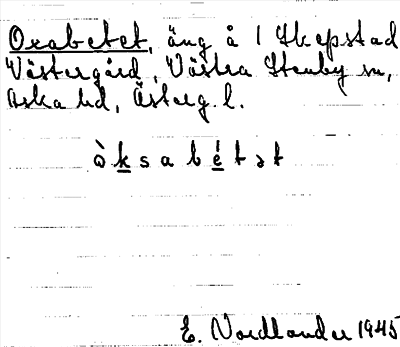 Oxabetet, äng å 1 Skepstad
Västergård, Västra Stenby sn,
Aska hd, Österg. l.
ò k s a b é t ə t
E. Nordlander 1945